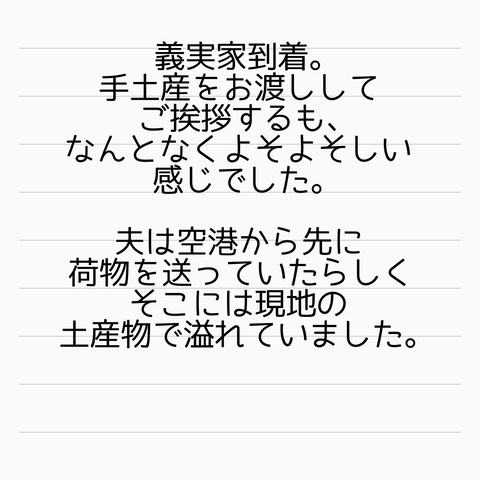 義実家到着。
手土産をお渡しして
ご挨拶するも、
なんとなくよそよそしい
感じでした。
夫は空港から先に
荷物を送っていたらしく
そこには現地の
土産物で溢れていました。